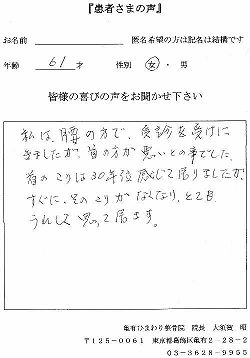 『患者さまの声』
お名前 匿名希望の方は記名は結構です
年齢 61才 性別 女・男
皆様の喜びの声をお聞かせ下さい
私は、腰の方で、受診を受けに
きましたが、首の方が悪いとの事でした。
首のこりは30年位感じて居りましたが、
すぐに、そのこりがなくなり、とても
うれしく思って居ます。
亀有ひまわり整骨院 院長 大須賀
〒125-0061 東京都葛飾区亀有2-28-2
03-3628-9955